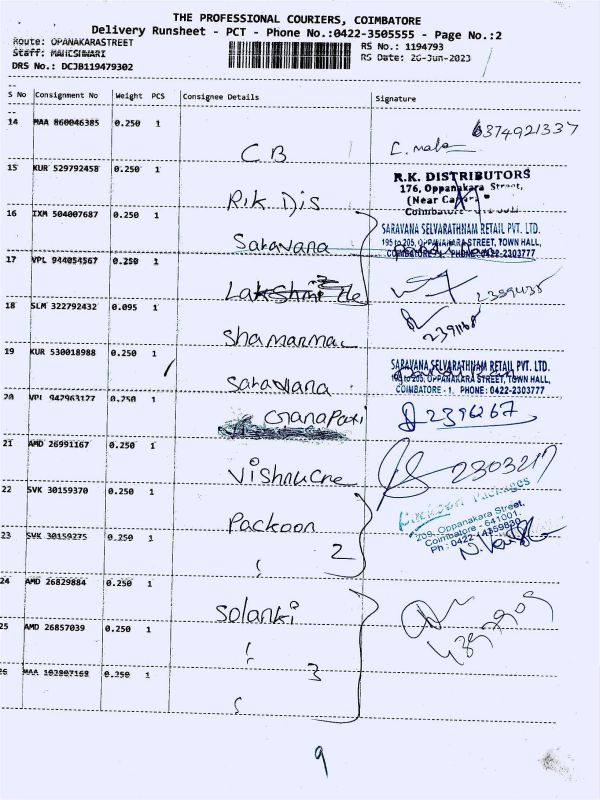 THE PROFESSIONAL COURIERS, COIMBATORE
Delivery Runsheet - PCT - Phone No.:0422-3505555 - Page No.:2
Route: OPANAKARASTREET RS No.: 1194793
Staff: MAHESHWARI RS Date: 26-Jun-2023
DRS No.: DCJB119479302
S No Consignment No Weight PCS Consignee Details Signature
14 MAA 860046385 0.250 1 CB C. mala 6374921337
15 KUR 529792458 0.250 1 R.K Dis R.K. DISTRIBUTORS
176, Oppanakara Street,
(Near
Coimbatore
16 IXM 504007687 0.250 1 Saravana SARAVANA SELVARATHNAM RETAIL PVT. LTD.
195 to 205, OPPANAKARA STREET, TOWN HALL,
COIMBATORE - 1. PHONE: 0422-2303777
17 VPL 944054567 0.250 1 Lakshmi 2389438
18 SLM 322792432 0.095 1 Shamarmal 2391168
19 KUR 530018988 0.250 1 Saravana SARAVANA SELVARATHNAM RETAIL PVT. LTD.
195 to 205, OPPANAKARA STREET, TOWN HALL,
COIMBATORE - 1. PHONE: 0422-2303777
20 VPL 942963127 0.250 1 Ganapati 2396267
21 AMD 26991167 0.250 1 Vishnucne 2303217
22 SVK 30159370 0.250 1 Packoon Packages
209, Oppanakara Street,
Coimbatore - 641001.
Ph : 0422
23 SVK 30159275 0.250 1 2
24 AMD 26829884 0.250 1 Solanki
25 AMD 26857039 0.250 1 3
26 MAA 102807168 0.250 1
9